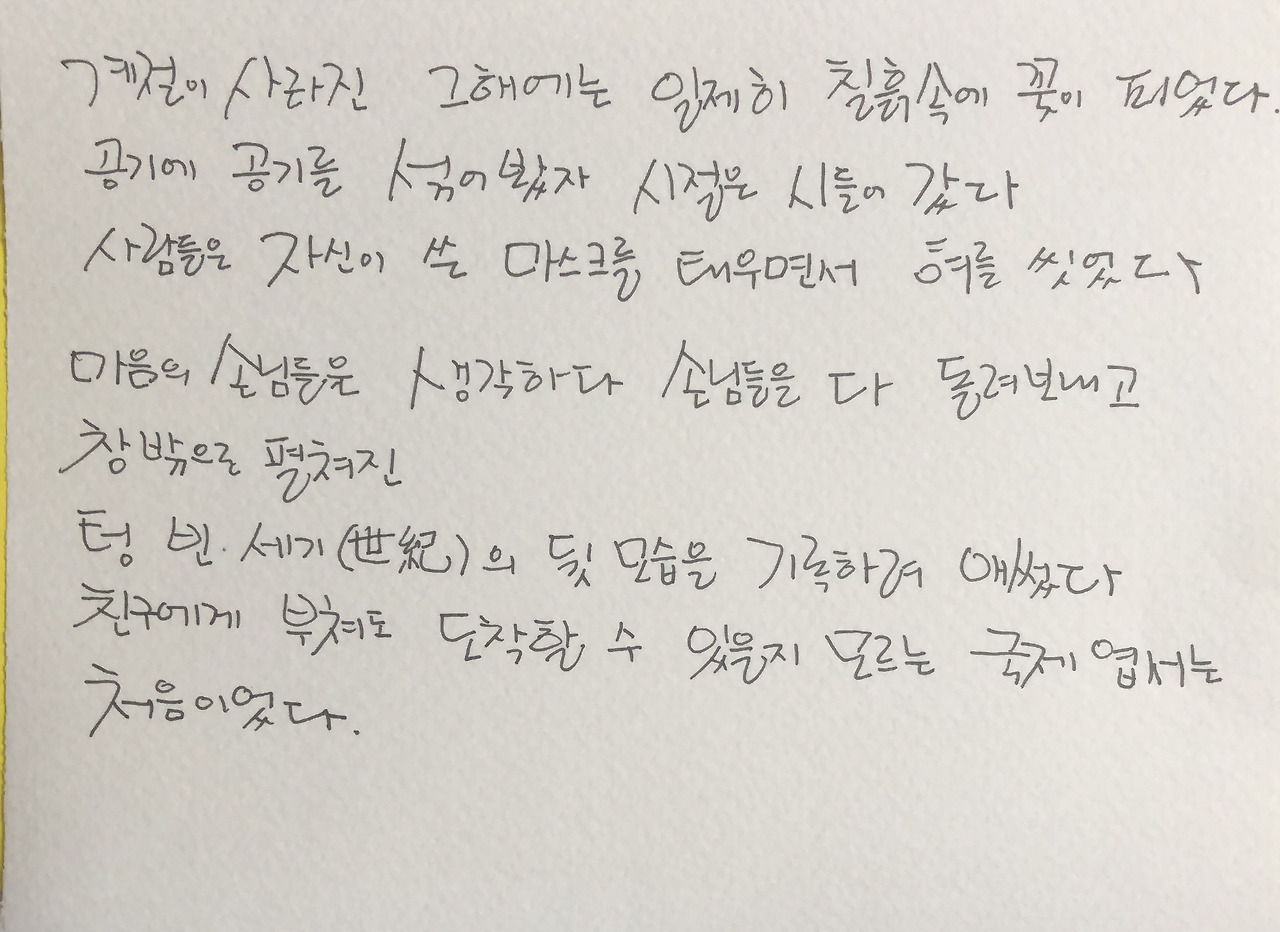 계절이 사라진 그해에는 일제히 칠흙속에 꽃이 피었다.
공기에 공기를 섞어봤자 시절은 시들어 갔다
사람들은 자신이 쓴 마스크를 태우면서 혀를 씻었다
마음의 손님들을 생각하다 손님들을 다 돌려보내고
창밖으로 펼쳐진
텅 빈 세기(世紀)의 뒷 모습을 기록하려 애썼다
친구에게 부쳐도 도착할 수 있을지 모르는 국제 엽서는
처음이었다.